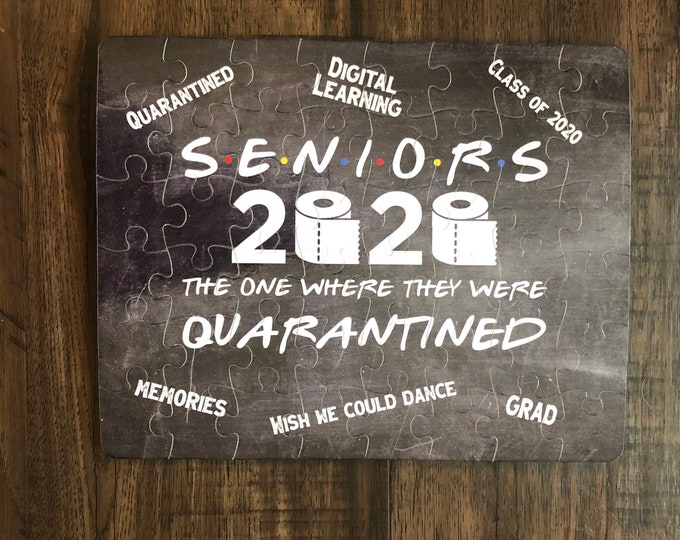 Quarantined
Digital
Learning
Class of 2020
S•E•N•I•O•R•S
2020
THE ONE WHERE THEY WERE
QUARANTINED
Memories
Wish we could dance
Grad